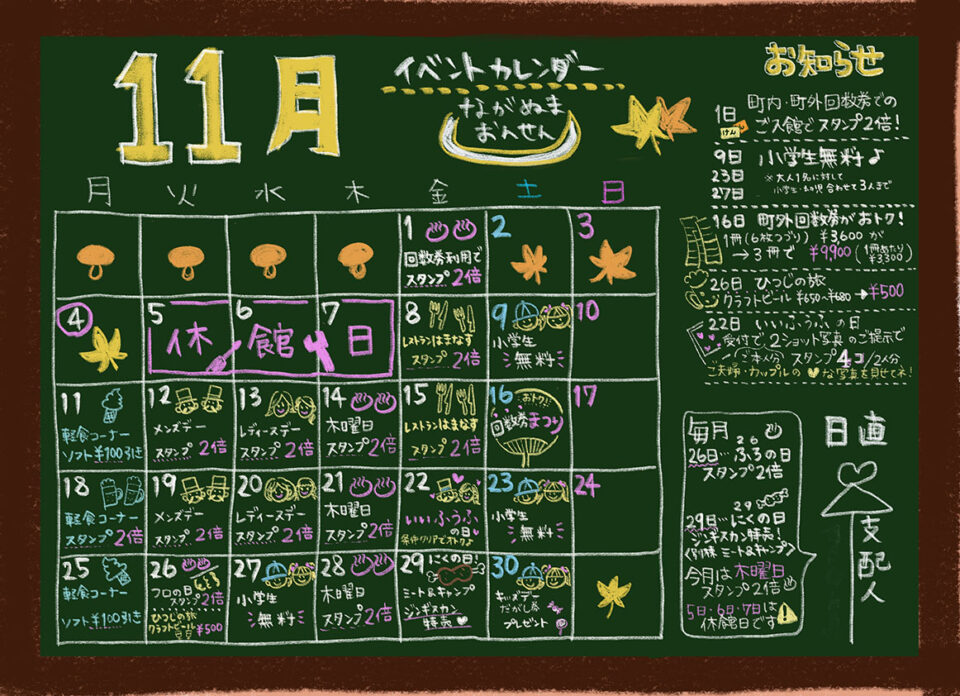 11月
イベントカレンダー
ながぬま
おんせん
月 火 水 木 金 土 日
1
回数券利用で
スタンプ2倍
2
3
4
5 6 7
休館日
8
レストランはまなす
スタンプ2倍
9
小学生
無料
10
11
軽食コーナー
ソフト¥100引き
12
メンズデー
スタンプ2倍
13
レディースデー
スタンプ2倍
14
木曜日
スタンプ2倍
15
レストランはまなす
スタンプ2倍
16
おトク!!
回数券まつり
17
18
軽食コーナー
スタンプ2倍
19
メンズデー
スタンプ2倍
20
レディースデー
スタンプ2倍
21
木曜日
スタンプ2倍
22
いいふうふ
の日
条件クリアでオトクよ
23
小学生
無料
24
25
軽食コーナー
ソフト¥100引き
26
フロの日
スタンプ2倍
ひつじの旅
クラフトビール
¥500
27
小学生
無料
28
木曜日
スタンプ2倍
29 にくの日!
ミート&キャンプ
ジンギスカン
特売
30
キッズデー
だがし券
プレゼント
お知らせ
1日
けん
町内・町外回数券での
ご入館でスタンプ2倍!
9日
23日
27日
小学生無料♪
※大人1名に対して
小学生・幼児合わせて3人まで
16日 町外回数券がおトク!
1冊(6枚つづり) ¥3,600が
→3冊で ¥9,900 (1冊あたり ¥3300)
26日 ひつじの旅
クラフトビール ¥650〜¥680→¥500
22日 いいふうふの日
受付で、2ショット写真のご提示で
(ご本人分) スタンプ4コ/2人分
ご夫婦・カップルの♥な写真を見せてネ!
毎月
26
26日…ふろの日
スタンプ2倍
29
29日…にくの日
ジンギスカン特売!
ミート&キャンプ
今月は木曜日
スタンプ2倍
5日・6日・7日は
休館日です
日直
支配人